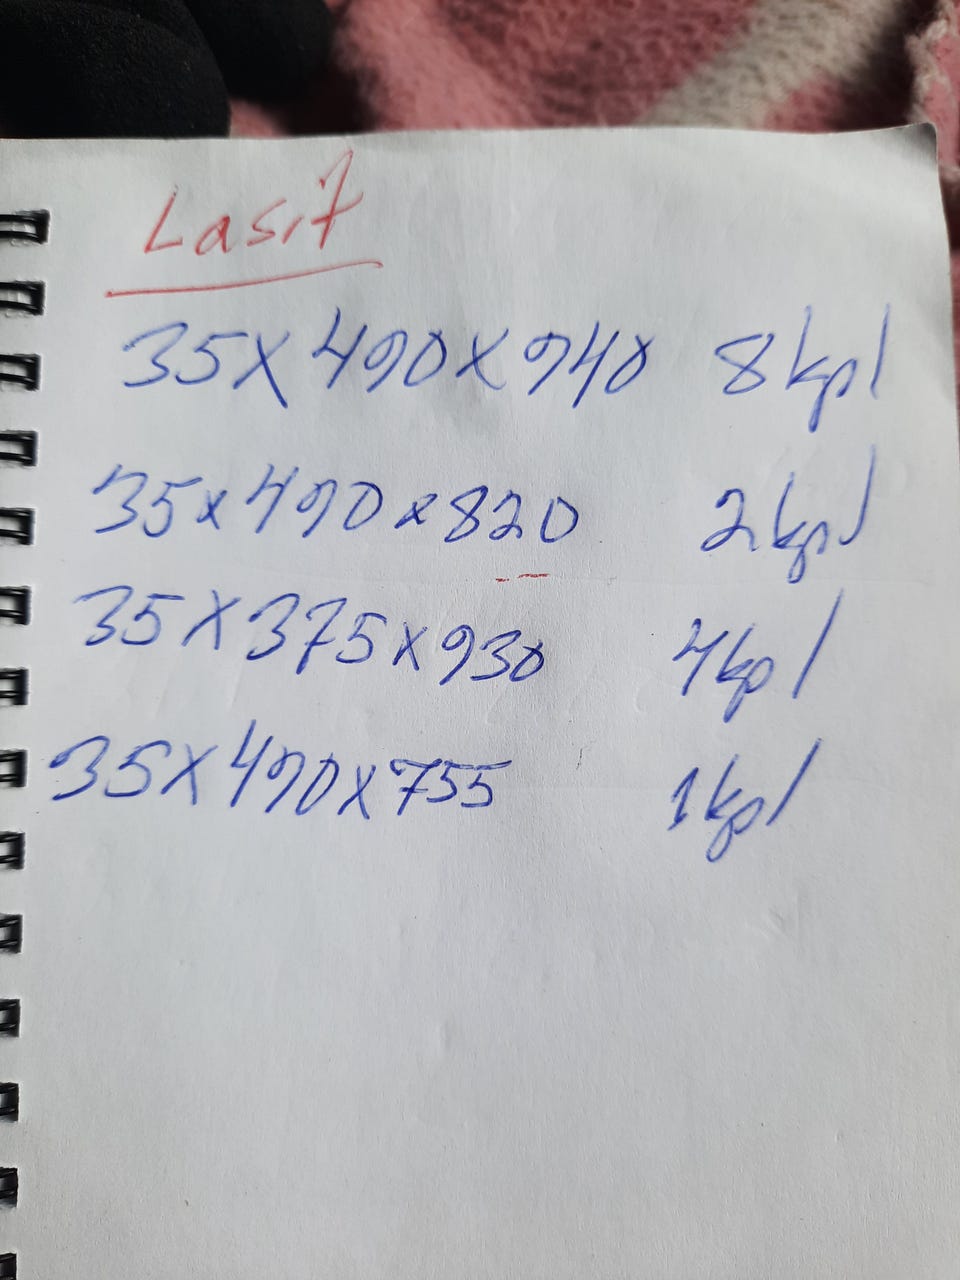 Lasit
35x490x940 8kpl
35x490x820 2kpl
35x375x930 4kpl
35x490x755 1kpl